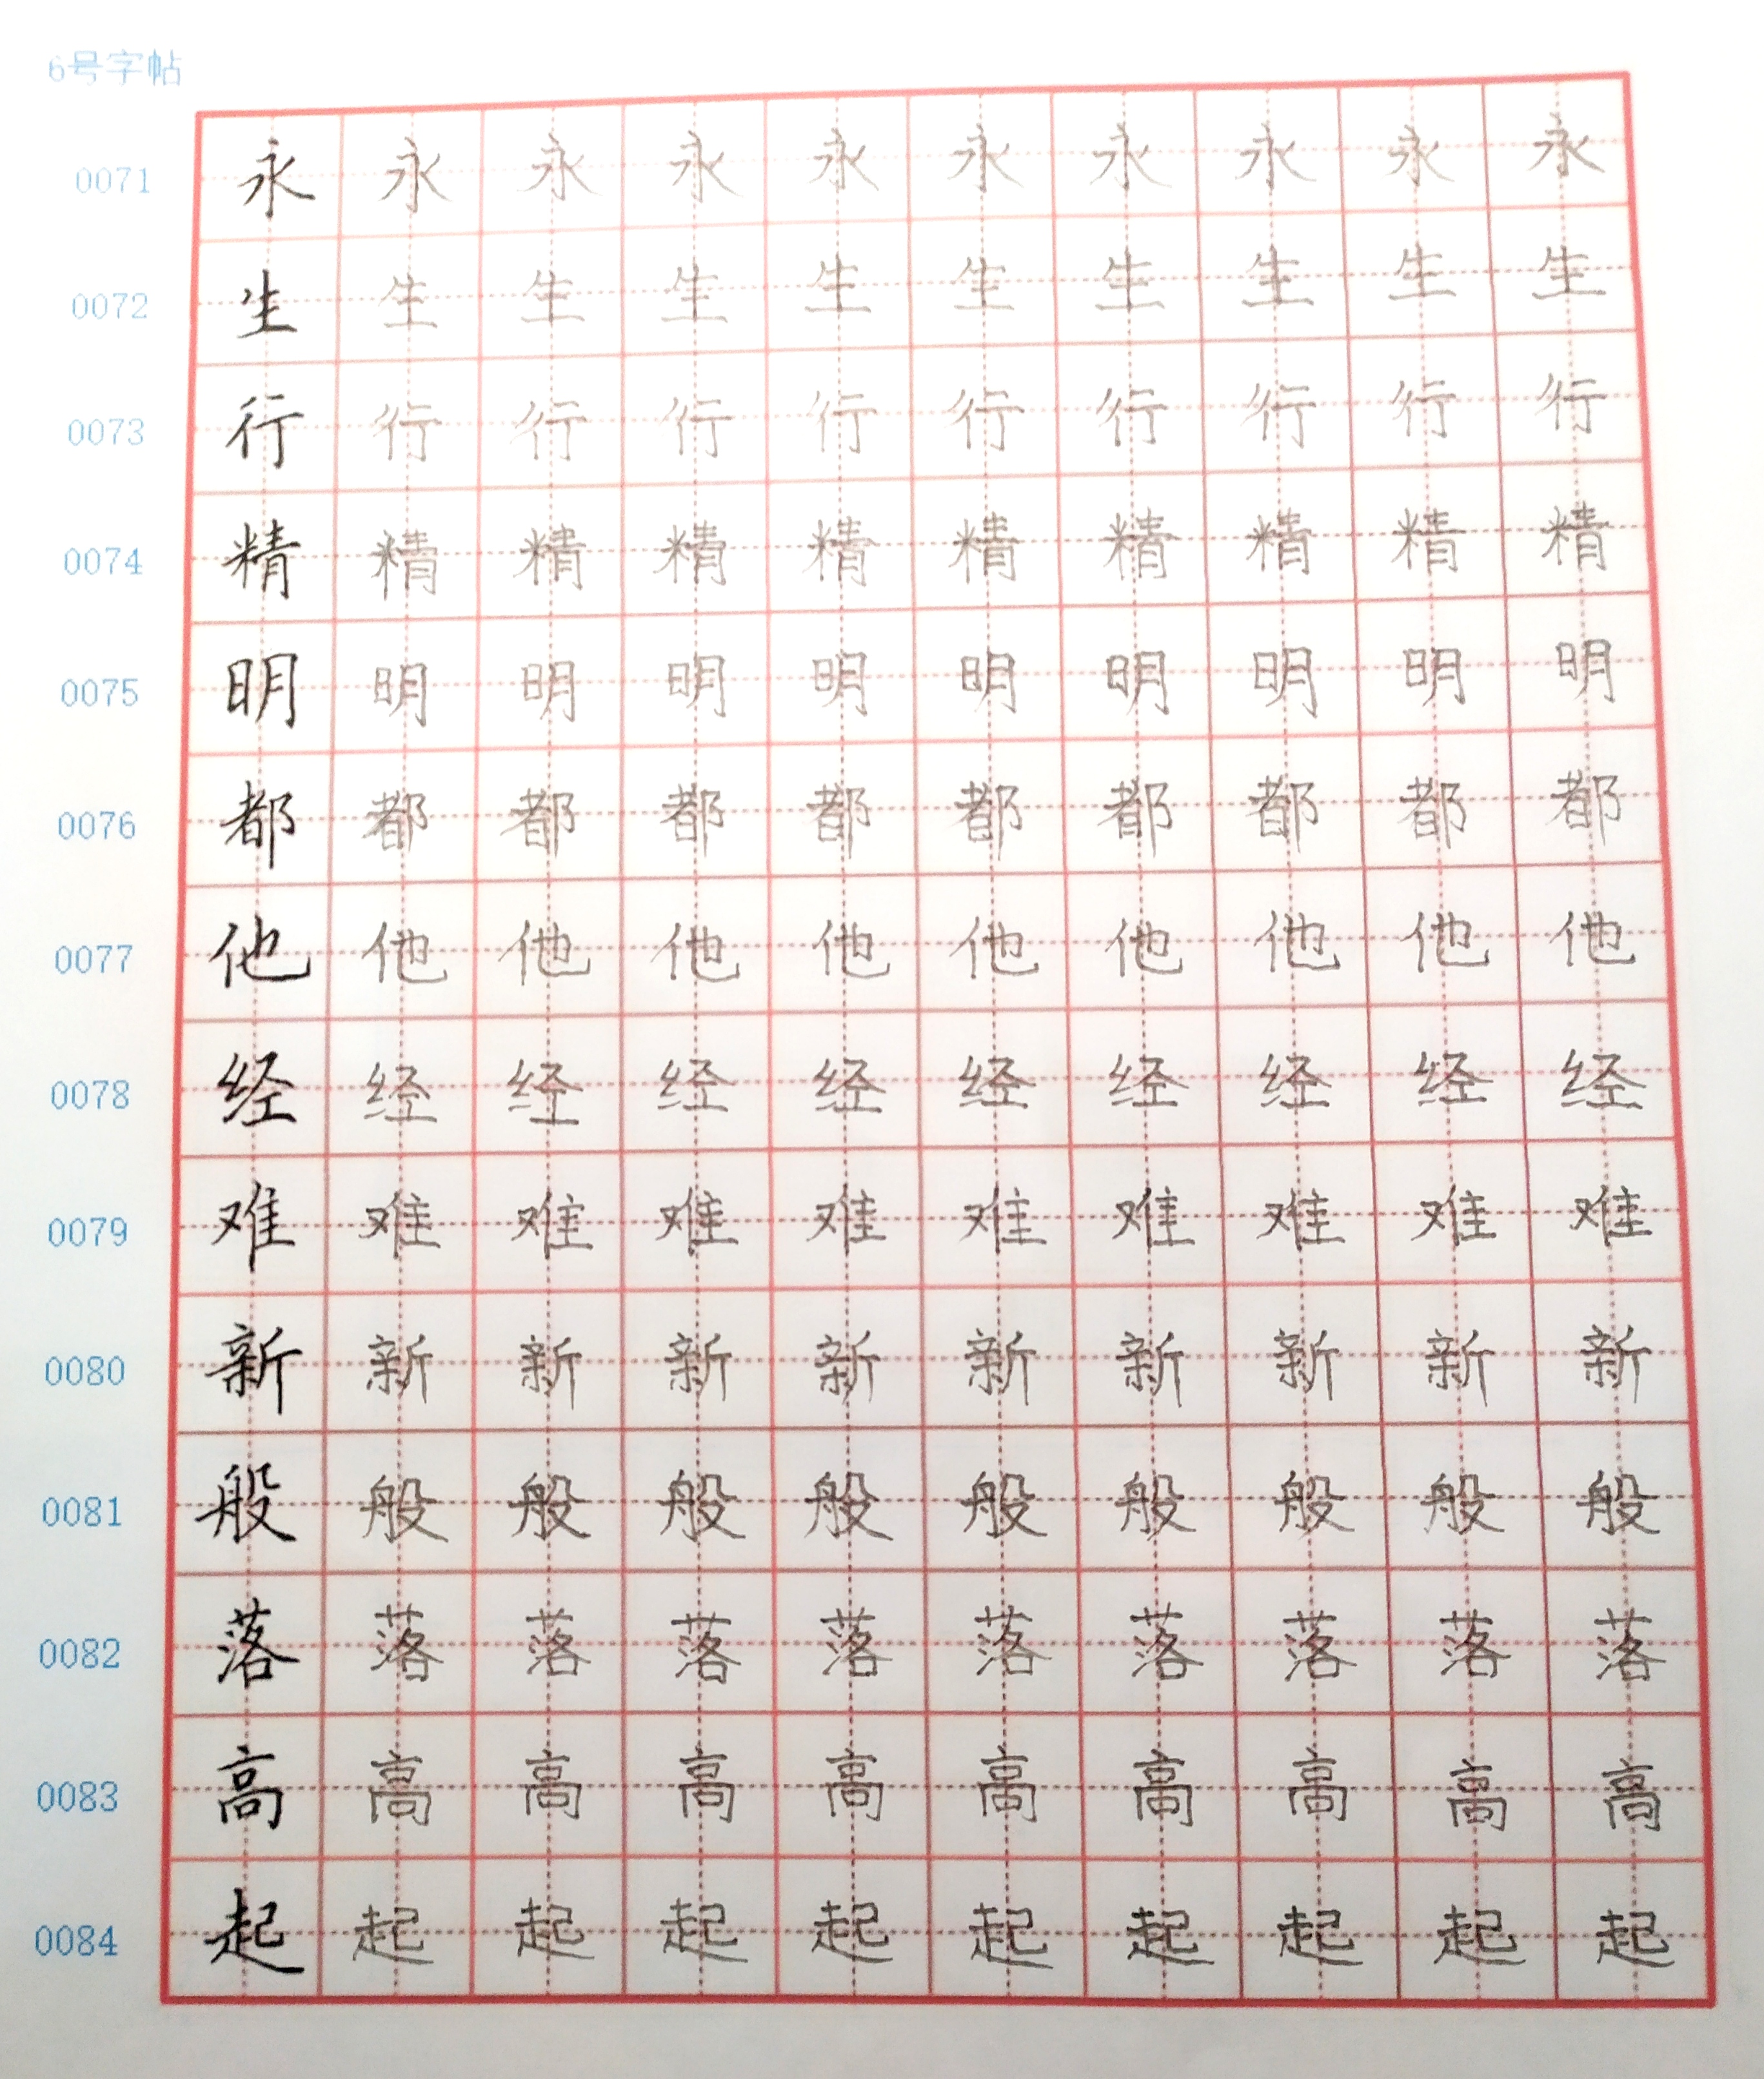 6号字帖
0071 永 永 永 永 永 永 永 永 永 永
0072 生 生 生 生 生 生 生 生 生 生
0073 行 行 行 行 行 行 行 行 行 行
0074 精 精 精 精 精 精 精 精 精 精
0075 明 明 明 明 明 明 明 明 明 明
0076 都 都 都 都 都 都 都 都 都 都
0077 他 他 他 他 他 他 他 他 他 他
0078 经 经 经 经 经 经 经 经 经 经
0079 难 难 难 难 难 难 难 难 难 难
0080 新 新 新 新 新 新 新 新 新 新
0081 般 般 般 般 般 般 般 般 般 般
0082 落 落 落 落 落 落 落 落 落 落
0083 高 高 高 高 高 高 高 高 高 高
0084 起 起 起 起 起 起 起 起 起 起